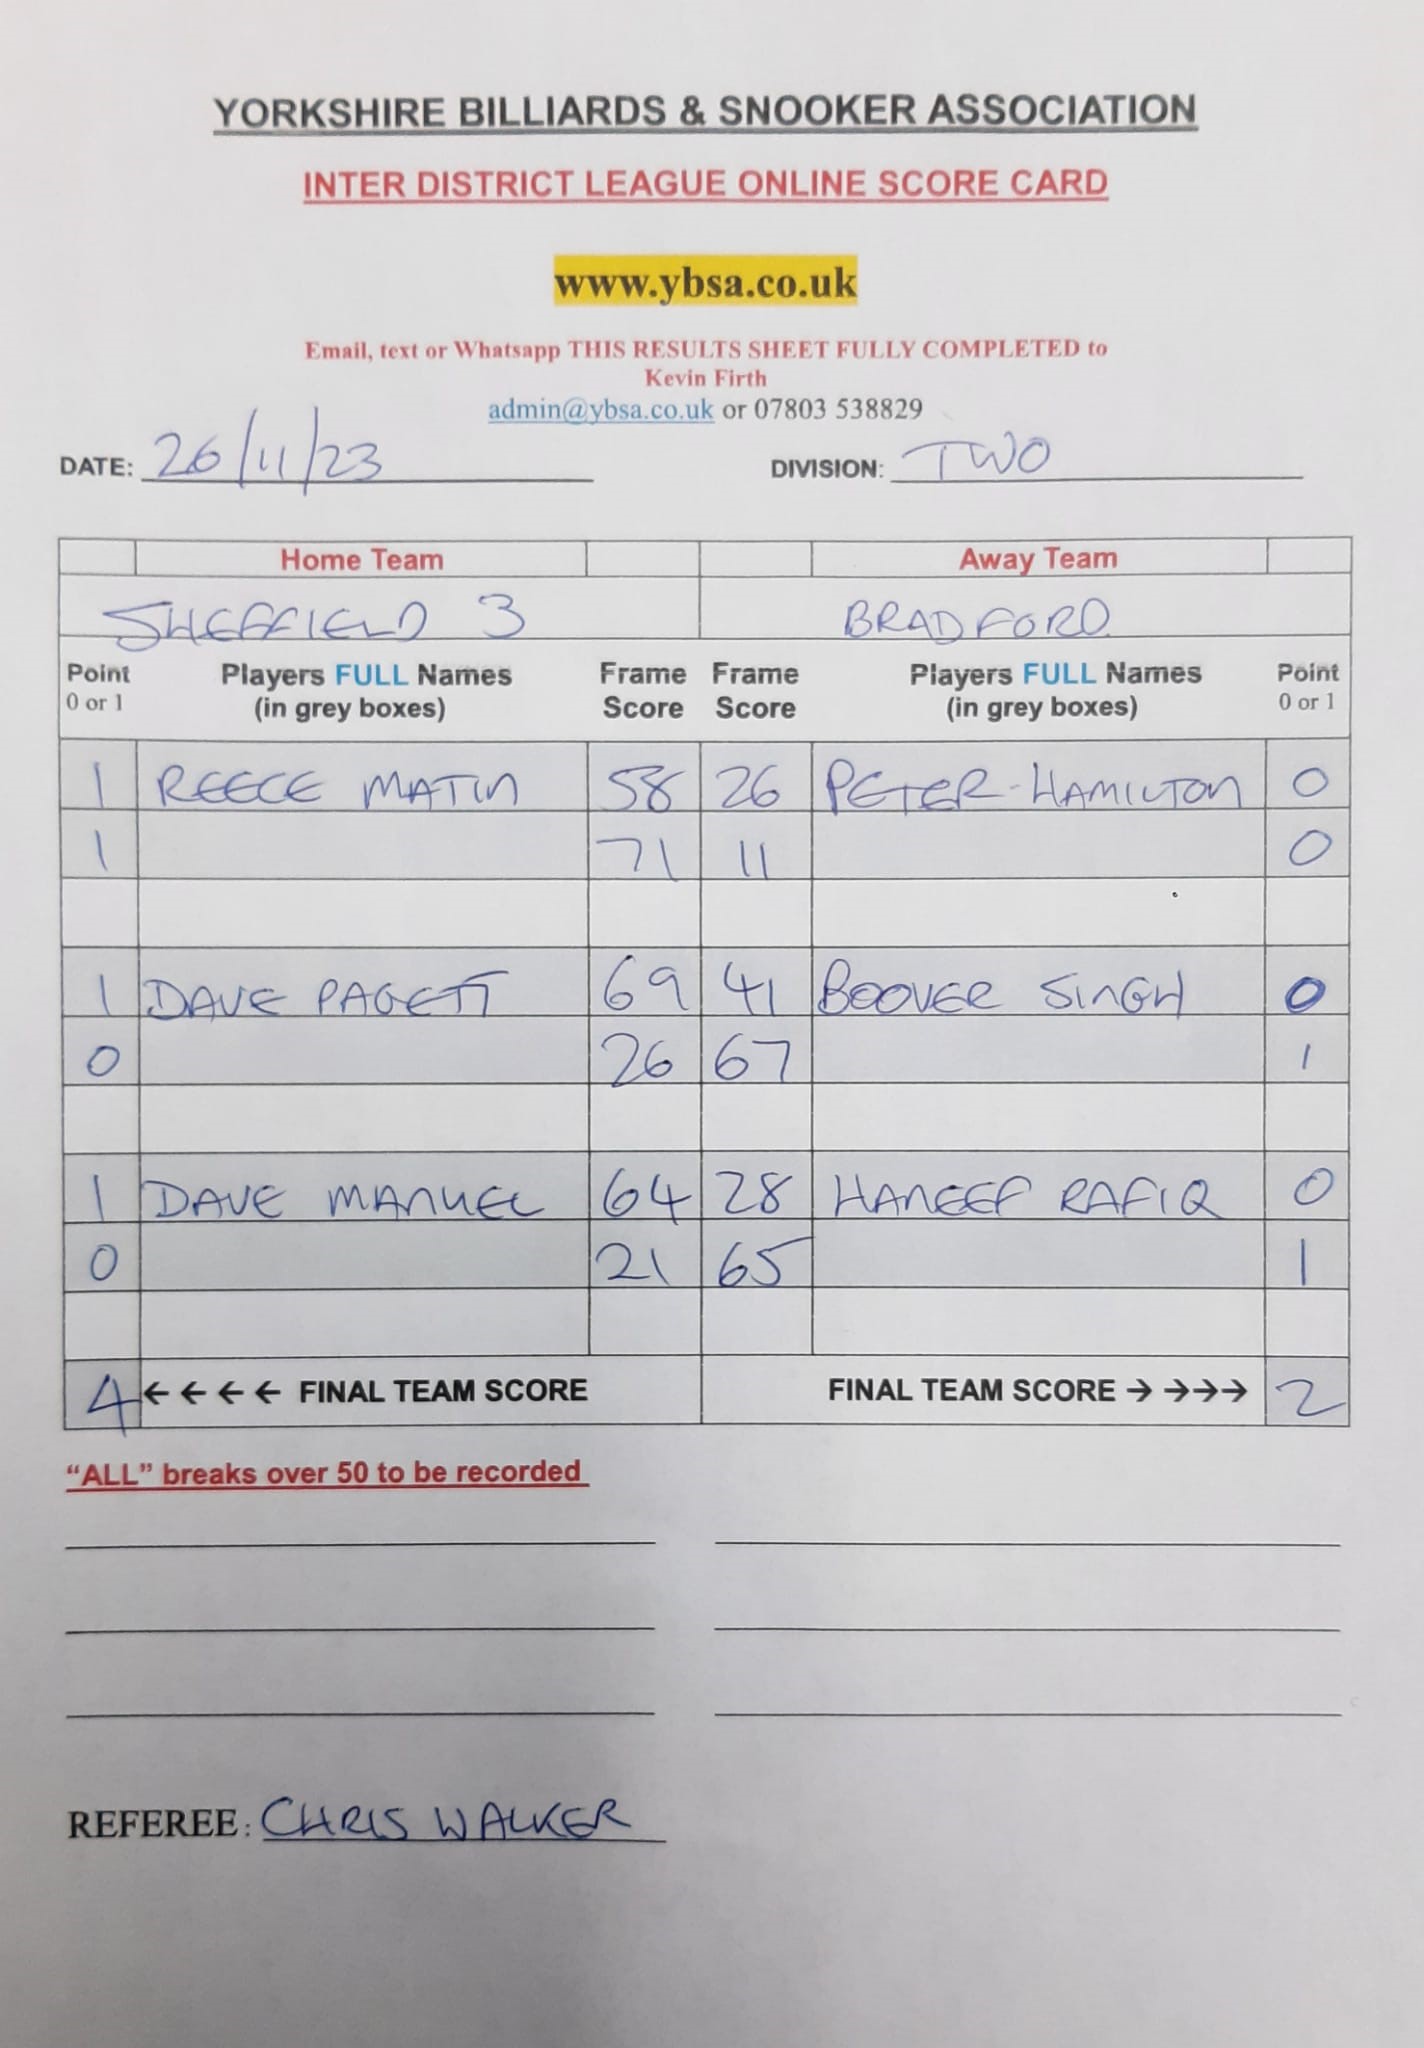 YORKSHIRE BILLIARDS & SNOOKER ASSOCIATION
INTER DISTRICT LEAGUE ONLINE SCORE CARD
www.ybsa.co.uk
Email, text or Whatsapp THIS RESULTS SHEET FULLY COMPLETED to
Kevin Firth
admin@ybsa.co.uk or 07803 538829
DATE: 26/11/23 DIVISION: TWO
Home Team Away Team
SHEFFIELD 3 BRADFORD
Point Players FULL Names Frame Frame Players FULL Names Point
0 or 1 (in grey boxes) Score Score (in grey boxes) 0 or 1
1 REECE MATIN 58 26 PETER-HAMILTON 0
1 71 11 0
1 DAVE PAGETT 69 41 BOOVER SINGH 0
0 26 67 1
1 DAVE MANUEL 64 28 HANEEF RAFIQ 0
0 21 65 1
4 ← ← ← ← FINAL TEAM SCORE FINAL TEAM SCORE → →→→ 2
“ALL” breaks over 50 to be recorded
REFEREE: CHRIS WALKER